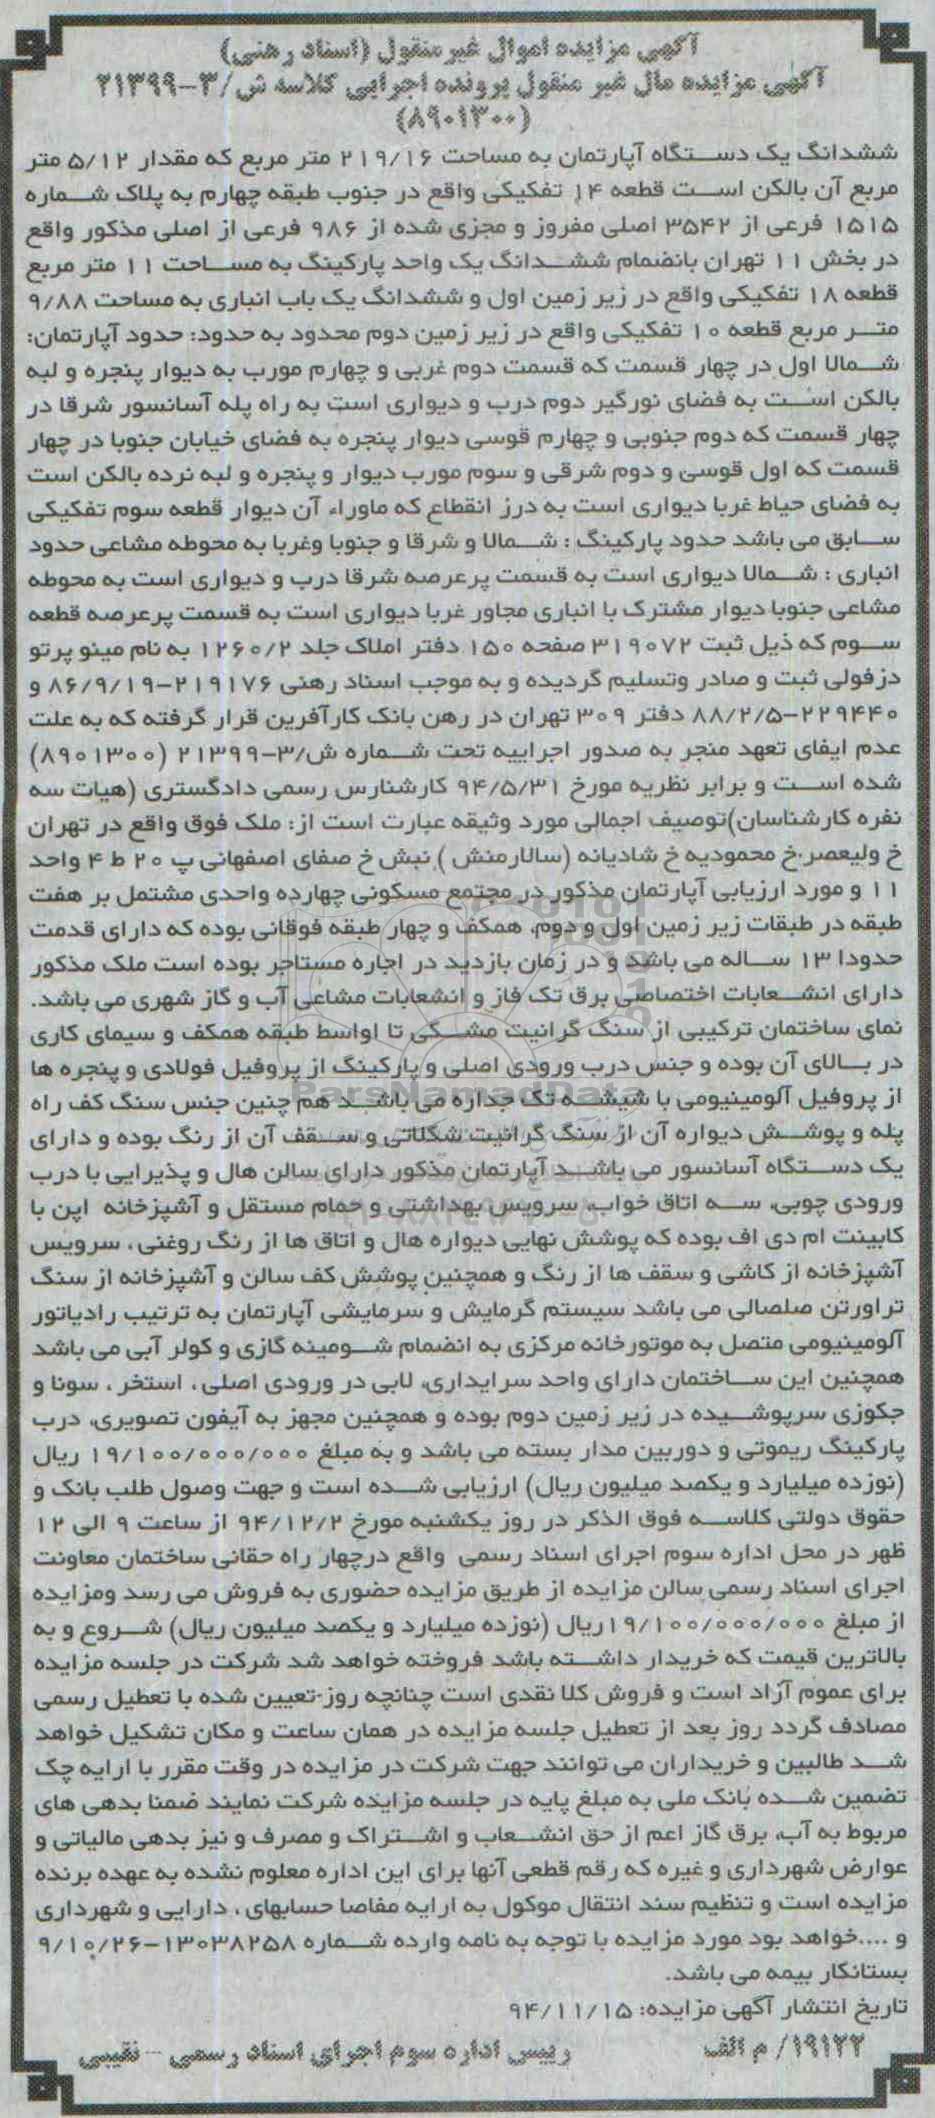 آگهی مزایده اموال غیر منقول (اسناد رهنی)
آگهی مزایده مال غیر منقول پرونده اجرایی کلاسه ش/۳-۲۱۳۹۹
(۸۹۰۱۳۰۰)
ششدانگ یک دستگاه آپارتمان به مساحت ۲۱۹/۱۶ متر مربع که مقدار ۵/۱۲ متر
مربع آن بالکن است قطعه ۱۴ تفکیکی واقع در جنوب طبقه چهارم به پلاک شماره
۱۵۱۵ فرعی از ۳۵۴۲ اصلی مفروز و مجزی شده از ۹۸۶ فرعی از اصلی مذکور واقع
در بخش ۱۱ تهران بانضمام ششدانگ یک واحد پارکینگ به مساحت ۱۱ متر مربع
قطعه ۱۸ تفکیکی واقع در زیر زمین اول و ششدانگ یک باب انباری به مساحت ۹/۸۸
متر مربع قطعه ۱۰ تفکیکی واقع در زیر زمین دوم محدود به حدود: حدود آپارتمان:
شمالا اول در چهار قسمت که قسمت دوم غربی و چهارم مورب به دیوار پنجره و لبه
بالکن است به فضای نورگیر دوم درب و دیواری است به راه پله آسانسور شرقا در
چهار قسمت که دوم جنوبی و چهارم قوسی دیوار پنجره به فضای خیابان جنوبا در چهار
قسمت که اول قوسی و دوم شرقی و سوم مورب دیوار و پنجره و لبه نرده بالکن است
به فضای حیاط غربا دیواری است به درز انقطاع که ماوراء آن دیوار قطعه سوم تفکیکی
سابق می باشد حدود پارکینگ : شمالا و شرقا و جنوبا وغربا به محوطه مشاعی حدود
انباری : شمالا دیواری است به قسمت پرعرصه شرقا درب و دیواری است به محوطه
مشاعی جنوبا دیوار مشترک با انباری مجاور غربا دیواری است به قسمت پرعرصه قطعه
سوم که ذیل ثبت ۳۱۹۰۷۲ صفحه ۱۵۰ دفتر املاک جلد ۱۲۶۰/۲ به نام مینو پرتو
دزفولی ثبت و صادر وتسلیم گردیده و به موجب اسناد رهنی ۲۱۹۱۷۶-۸۶/۹/۱۹ و
۲۲۹۴۴۰-۸۸/۲/۵ دفتر ۳۰۹ تهران در رهن بانک کارآفرین قرار گرفته که به علت
عدم ایفای تعهد منجر به صدور اجراییه تحت شماره ش/۳-۲۱۳۹۹ (۸۹۰۱۳۰۰)
شده است و برابر نظریه مورخ ۹۴/۵/۳۱ کارشنارس رسمی دادگستری (هیات سه
نفره کارشناسان)توصیف اجمالی مورد وثیقه عبارت است از: ملک فوق واقع در تهران
خ ولیعصر.خ محمودیه خ شادیانه (سالارمنش) نبش خ صفای اصفهانی پ ۲۰ ط ۴ واحد
۱۱ و مورد ارزیابی آپارتمان مذکور در مجتمع مسکونی چهارده واحدی مشتمل بر هفت
طبقه در طبقات زیر زمین اول و دوم، همکف و چهار طبقه فوقانی بوده که دارای قدمت
حدودا ۱۳ ساله می باشد و در زمان بازدید در اجاره مستاجر بوده است ملک مذکور
دارای انشعابات اختصاصی برق تک فاز و انشعابات مشاعی آب و گاز شهری می باشد.
نمای ساختمان ترکیبی از سنگ گرانیت مشکی تا اواسط طبقه همکف و سیمای کاری
در بالای آن بوده و جنس درب ورودی اصلی و پارکینگ از پروفیل فولادی و پنجره ها
از پروفیل آلومینیومی با شیشه تک جداره می باشد هم چنین جنس سنگ کف راه
پله و پوشش دیواره آن از سنگ گرانیت شکلاتی و سقف آن از رنگ بوده و دارای
یک دستگاه آسانسور می باشد آپارتمان مذکور دارای سالن هال و پذیرایی با درب
ورودی چوبی، سه اتاق خواب، سرویس بهداشتی و حمام مستقل و آشپزخانه اپن با
کابینت ام دی اف بوده که پوشش نهایی دیواره هال و اتاق ها از رنگ روغنی ، سرویس
آشپزخانه از کاشی و سقف ها از رنگ و همچنین پوشش کف سالن و آشپزخانه از سنگ
تراورتن صلصالی می باشد سیستم گرمایش و سرمایشی آپارتمان به ترتیب رادیاتور
آلومینیومی متصل به موتورخانه مرکزی به انضمام شومینه گازی و کولر آبی می باشد
همچنین این ساختمان دارای واحد سرایداری، لابی در ورودی اصلی ، استخر ، سونا و
جکوزی سرپوشیده در زیر زمین دوم بوده و همچنین مجهز به آیفون تصویری، درب
پارکینگ ریموتی و دوربین مدار بسته می باشد و به مبلغ ۱۹/۱۰۰/۰۰۰/۰۰۰ ریال
(نوزده میلیارد و یکصد میلیون ریال) ارزیابی شده است و جهت وصول طلب بانک و
حقوق دولتی کلاسه فوق الذکر در روز یکشنبه مورخ ۹۴/۱۲/۲ از ساعت ۹ الی ۱۲
ظهر در محل اداره سوم اجرای اسناد رسمی واقع درچهار راه حقانی ساختمان معاونت
اجرای اسناد رسمی سالن مزایده از طریق مزایده حضوری به فروش می رسد ومزایده
از مبلغ ۱۹/۱۰۰/۰۰۰/۰۰۰ریال (نوزده میلیارد و یکصد میلیون ریال) شروع و به
بالاترین قیمت که خریدار داشته باشد فروخته خواهد شد شرکت در جلسه مزایده
برای عموم آزاد است و فروش کلا نقدی است چنانچه روز تعیین شده با تعطیل رسمی
مصادف گردد روز بعد از تعطیل جلسه مزایده در همان ساعت و مکان تشکیل خواهد
شد طالبین و خریداران می توانند جهت شرکت در مزایده در وقت مقرر با ارایه چک
تضمین شده بانک ملی به مبلغ پایه در جلسه مزایده شرکت نمایند ضمنا بدهی های
مربوط به آب، برق گاز اعم از حق انشعاب و اشتراک و مصرف و نیز بدهی مالیاتی و
عوارض شهرداری و غیره که رقم قطعی آنها برای این اداره معلوم نشده به عهده برنده
مزایده است و تنظیم سند انتقال موکول به ارایه مفاصا حسابهای ، دارایی و شهرداری
و ....خواهد بود مورد مزایده با توجه به نامه وارده شماره ۱۳۰۳۸۲۵۸-۹/۱۰/۲۶
بستانکار بیمه می باشد.
تاریخ انتشار آگهی مزایده: ۹۴/۱۱/۱۵
۱۹۱۲۲/ م الف
رییس اداره سوم اجرای اسناد رسمی - نقیبی
ParsNamadData